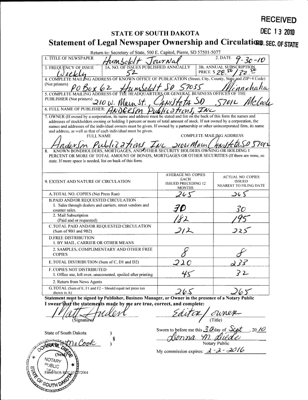 RECEIVED
DEC 13 2010
S.D. SEC. OF STATE
STATE OF SOUTH DAKOTA
Statement of Legal Newspaper Ownership and Circulation
Return to: Secretary of State, 500 E. Capitol, Pierre, SD 57501-5077
1. TITLE OF NEWSPAPER Humboldt Journal 2. DATE 9-30-10
3. FREQUENCY OF ISSUE Weekly 3A. NO. OF ISSUES PUBLISHED ANNUALLY 52 3B. ANNUAL SUBSCRIPTION PRICE
4. COMPLETE MAILING ADDRESS OF KNOWN OFFICE OF PUBLICATION (Street, City, County, State and ZIP+4 Code)
(Not printers) PO Box 62 Humboldt SD 57035 Minnehaha
5. COMPLETE MAILING ADDRESS OF THE HEADQUARTERS OR GENERAL BUSINESS OFFICES OF THE
PUBLISHER (Not printers) 210 W. Main St., Canistota SD 57012 McCook
6. FULL NAME OF PUBLISHER: Anderson Publications, Inc.
7. OWNER (If owned by a corporation, its name and address must be stated and list on the back of this form the names and
addresses of stockholders owning or holding 1 percent or more of total amount of stock. If not owned by a corporation, the
names and addresses of the individual owners must be given. If owned by a partnership or other unincorporated firm, its name
and address, as well as that of each individual must be given.
FULL NAME COMPLETE MAILING ADDRESS
Anderson Publications Inc. 210 W Main Canistota SD 57012
8. KNOWN BONDHOLDERS, MORTGAGEES, AND OTHER SECURITY HOLDERS OWNING OR HOLDING 1
PERCENT OR MORE TOTAL AMOUNT OF BONDS, MORTGAGES OR OTHER SECURITIES (If there are none, so
state. If more space is needed, list on back of this form.)
9. EXTENT AND NATURE OF CIRCULATION
AVERAGE NO. COPIES EACH ISSUED PRECEDING 12 MONTHS
ACTUAL NO. COPIES ISSUED NEAREST TO FILING DATE
A. TOTAL NO. COPIES (Net Press Run) 265 265
B. PAID AND/OR REQUESTED CIRCULATION
1. Sales through dealers and carriers, street vendors and counter sales. 30 30
2. Mail Subscription (Paid and/or requested) 182 195
C. TOTAL PAID AND/OR REQUESTED CIRCULATION
(Sum of 9B1 and 9B2) 212 225
D. FREE DISTRIBUTION
1. BY MAIL, CARRIER OR OTHER MEANS
2. SAMPLES, COMPLIMENTARY AND OTHER FREE COPIES 8 8
E. TOTAL DISTRIBUTION (Sum of C, D1 and D2) 220 233
F. COPIES NOT DISTRIBUTED
1. Office use, left over, unaccounted, spoiled after printing 45 32
2. Return from News Agents
G. TOTAL (Sum of E, F1 and F2 - Should equal net press run shown in A) 265 265
Statement must be signed by Publisher, Business Manager, or Owner in the presence of a Notary Public
I swear that the statements made by me are true, correct, and complete:
Matt Anderson Editor / owner
(Signature) (Title)
State of South Dakota Sworn to before me this 30 day of Sept, 2010
McCook
My commission expires 2-2-2016
NOTARY PUBLIC
SOUTH DAKOTA